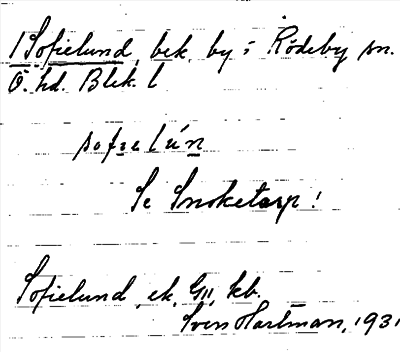 1 Sofielund, bek. by i Rödeby sn.
Ö. hd. Blek. l
sofɪelún
Se Snoketorp!
Sofielund, ek, GII, kb.
Sven Hartman, 1931